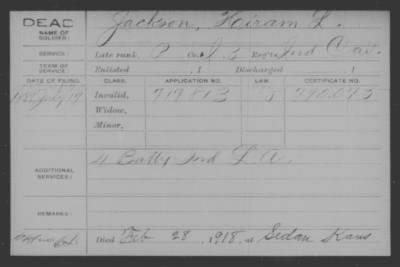 DEAD
NAME OF SOLDIER:
Jackson, Hiram L.
SERVICE:
Late rank, P Co. Reg't Ind Cav.
TERM OF SERVICE:
Enlisted , 1 Discharged , 1
DATE OF FILING. CLASS. APPLICATION NO. LAW. CERTIFICATE NO.
July 19 Invalid, 717.813 790.075
Widow,
Minor,
ADDITIONAL SERVICES:
4 Batty Ind L. A.
REMARKS:
Died Feb 28, 1918, at Sedan Kans